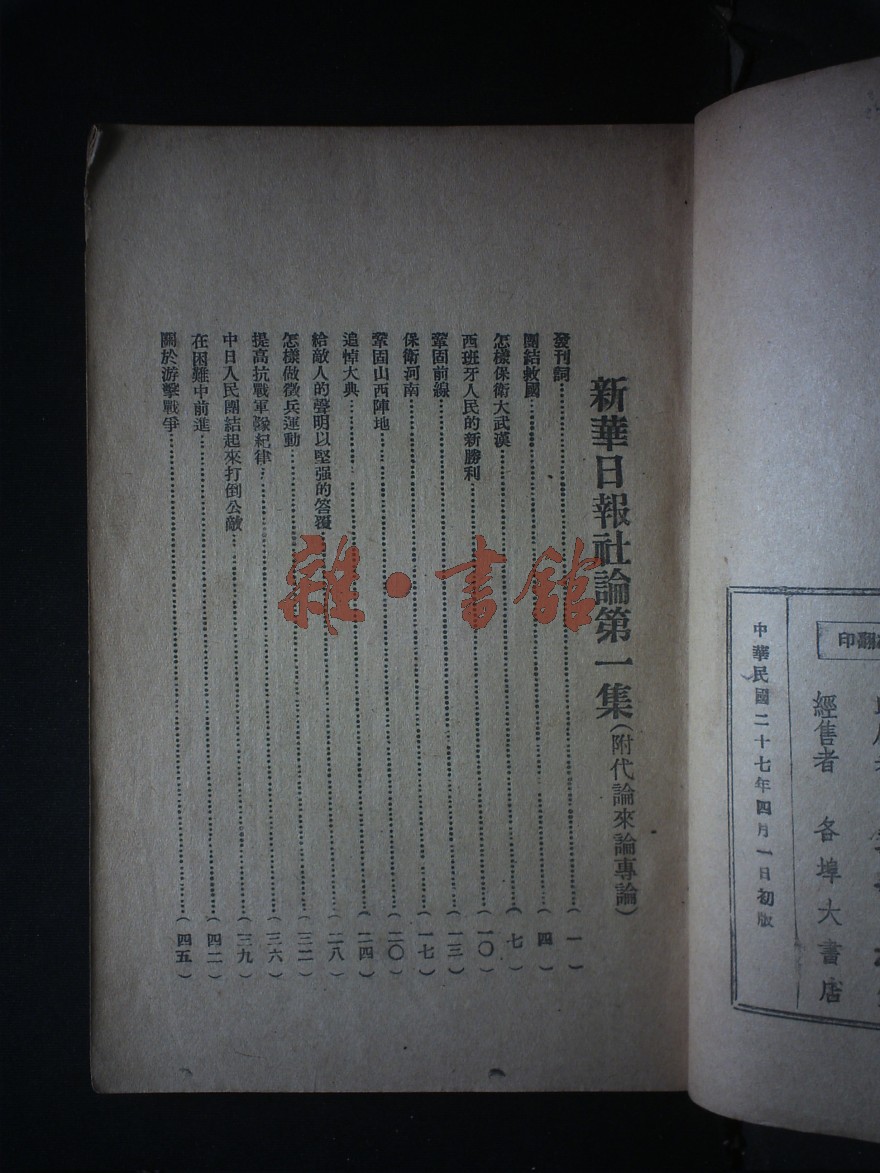 新華日報社論第一集(附代論來論專論)
發刊詞……(一)
團結救國……(四)
怎樣保衛大武漢……(七)
西班牙人民的新勝利……(一〇)
鞏固前線……(一三)
保衛河南……(一七)
鞏固山西陣地……(二〇)
追悼大典……(二四)
給敵人的聲明以堅强的答覆……(二八)
怎樣做徵兵運動……(三二)
提高抗戰軍隊紀律……(三六)
中日人民團結起來打倒公敵……(三九)
在困難中前進……(四二)
關於游擊戰爭……(四五)
雜·書館
翻印
經售者 各埠大書店
中華民國二十七年四月一日初版